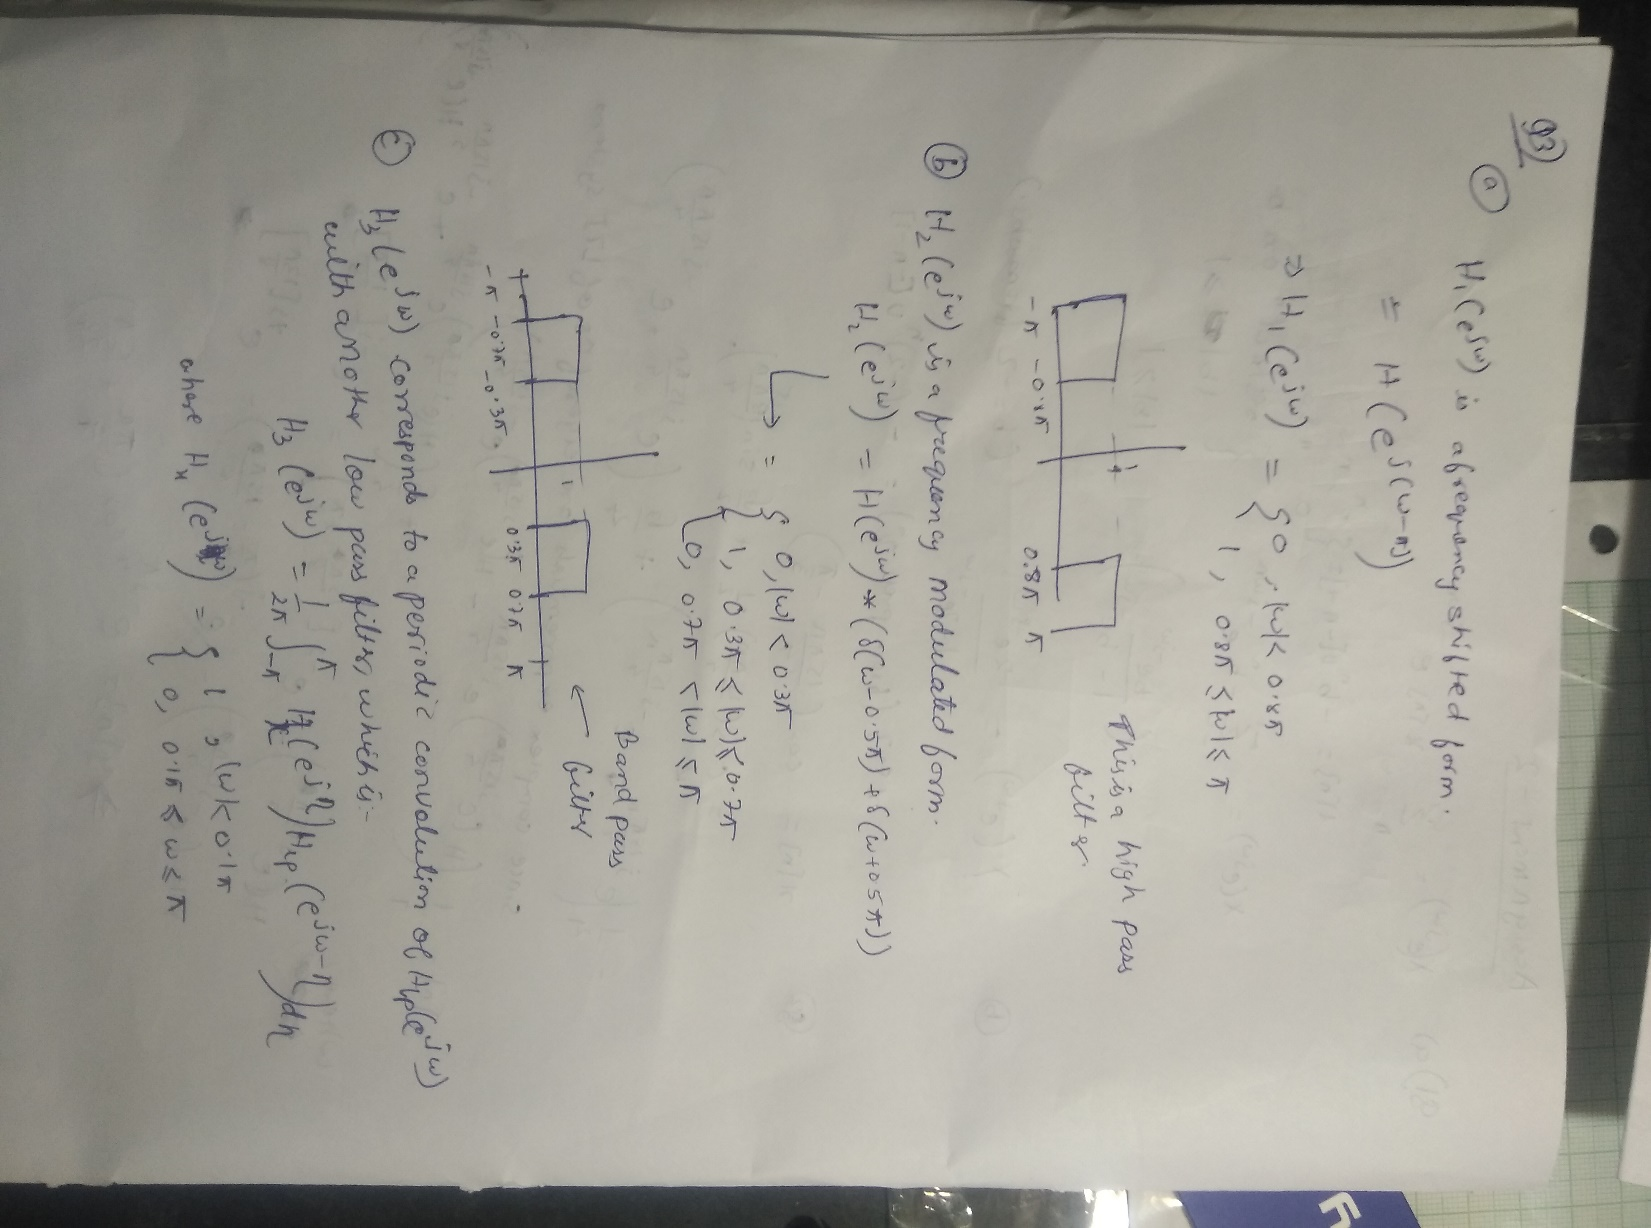 Q3)
(a) H₁(e^jω) is a frequency shifted form.
= H(e^j(ω-π))
⇒ H₁(e^jω) = { 0, |ω| < 0.8π
1, 0.8π ≤ |ω| ≤ π
1
-π -0.8π 0.8π π
This is a high pass
filter.
(b) H₂(e^jω) is a frequency modulated form.
H₂(e^jω) = H(e^jω) * (δ(ω-0.5π) + δ(ω+0.5π))
↳ = { 0, |ω| < 0.3π
1, 0.3π ≤ |ω| ≤ 0.7π
0, 0.7π < |ω| ≤ π
1
-π -0.7π -0.3π 0.3π 0.7π π
← Band pass
filter
(c) H₃(e^jω) corresponds to a periodic convolution of Hlp(e^jω)
with another low pass filter, which is:-
H₃(e^jω) = 1/2π ∫_-π^π H(e^jη) Hlp(e^jω-η) dη
where (e^jω) = { 1, |ω| < 0.1π
0, 0.1π ≤ ω ≤ π